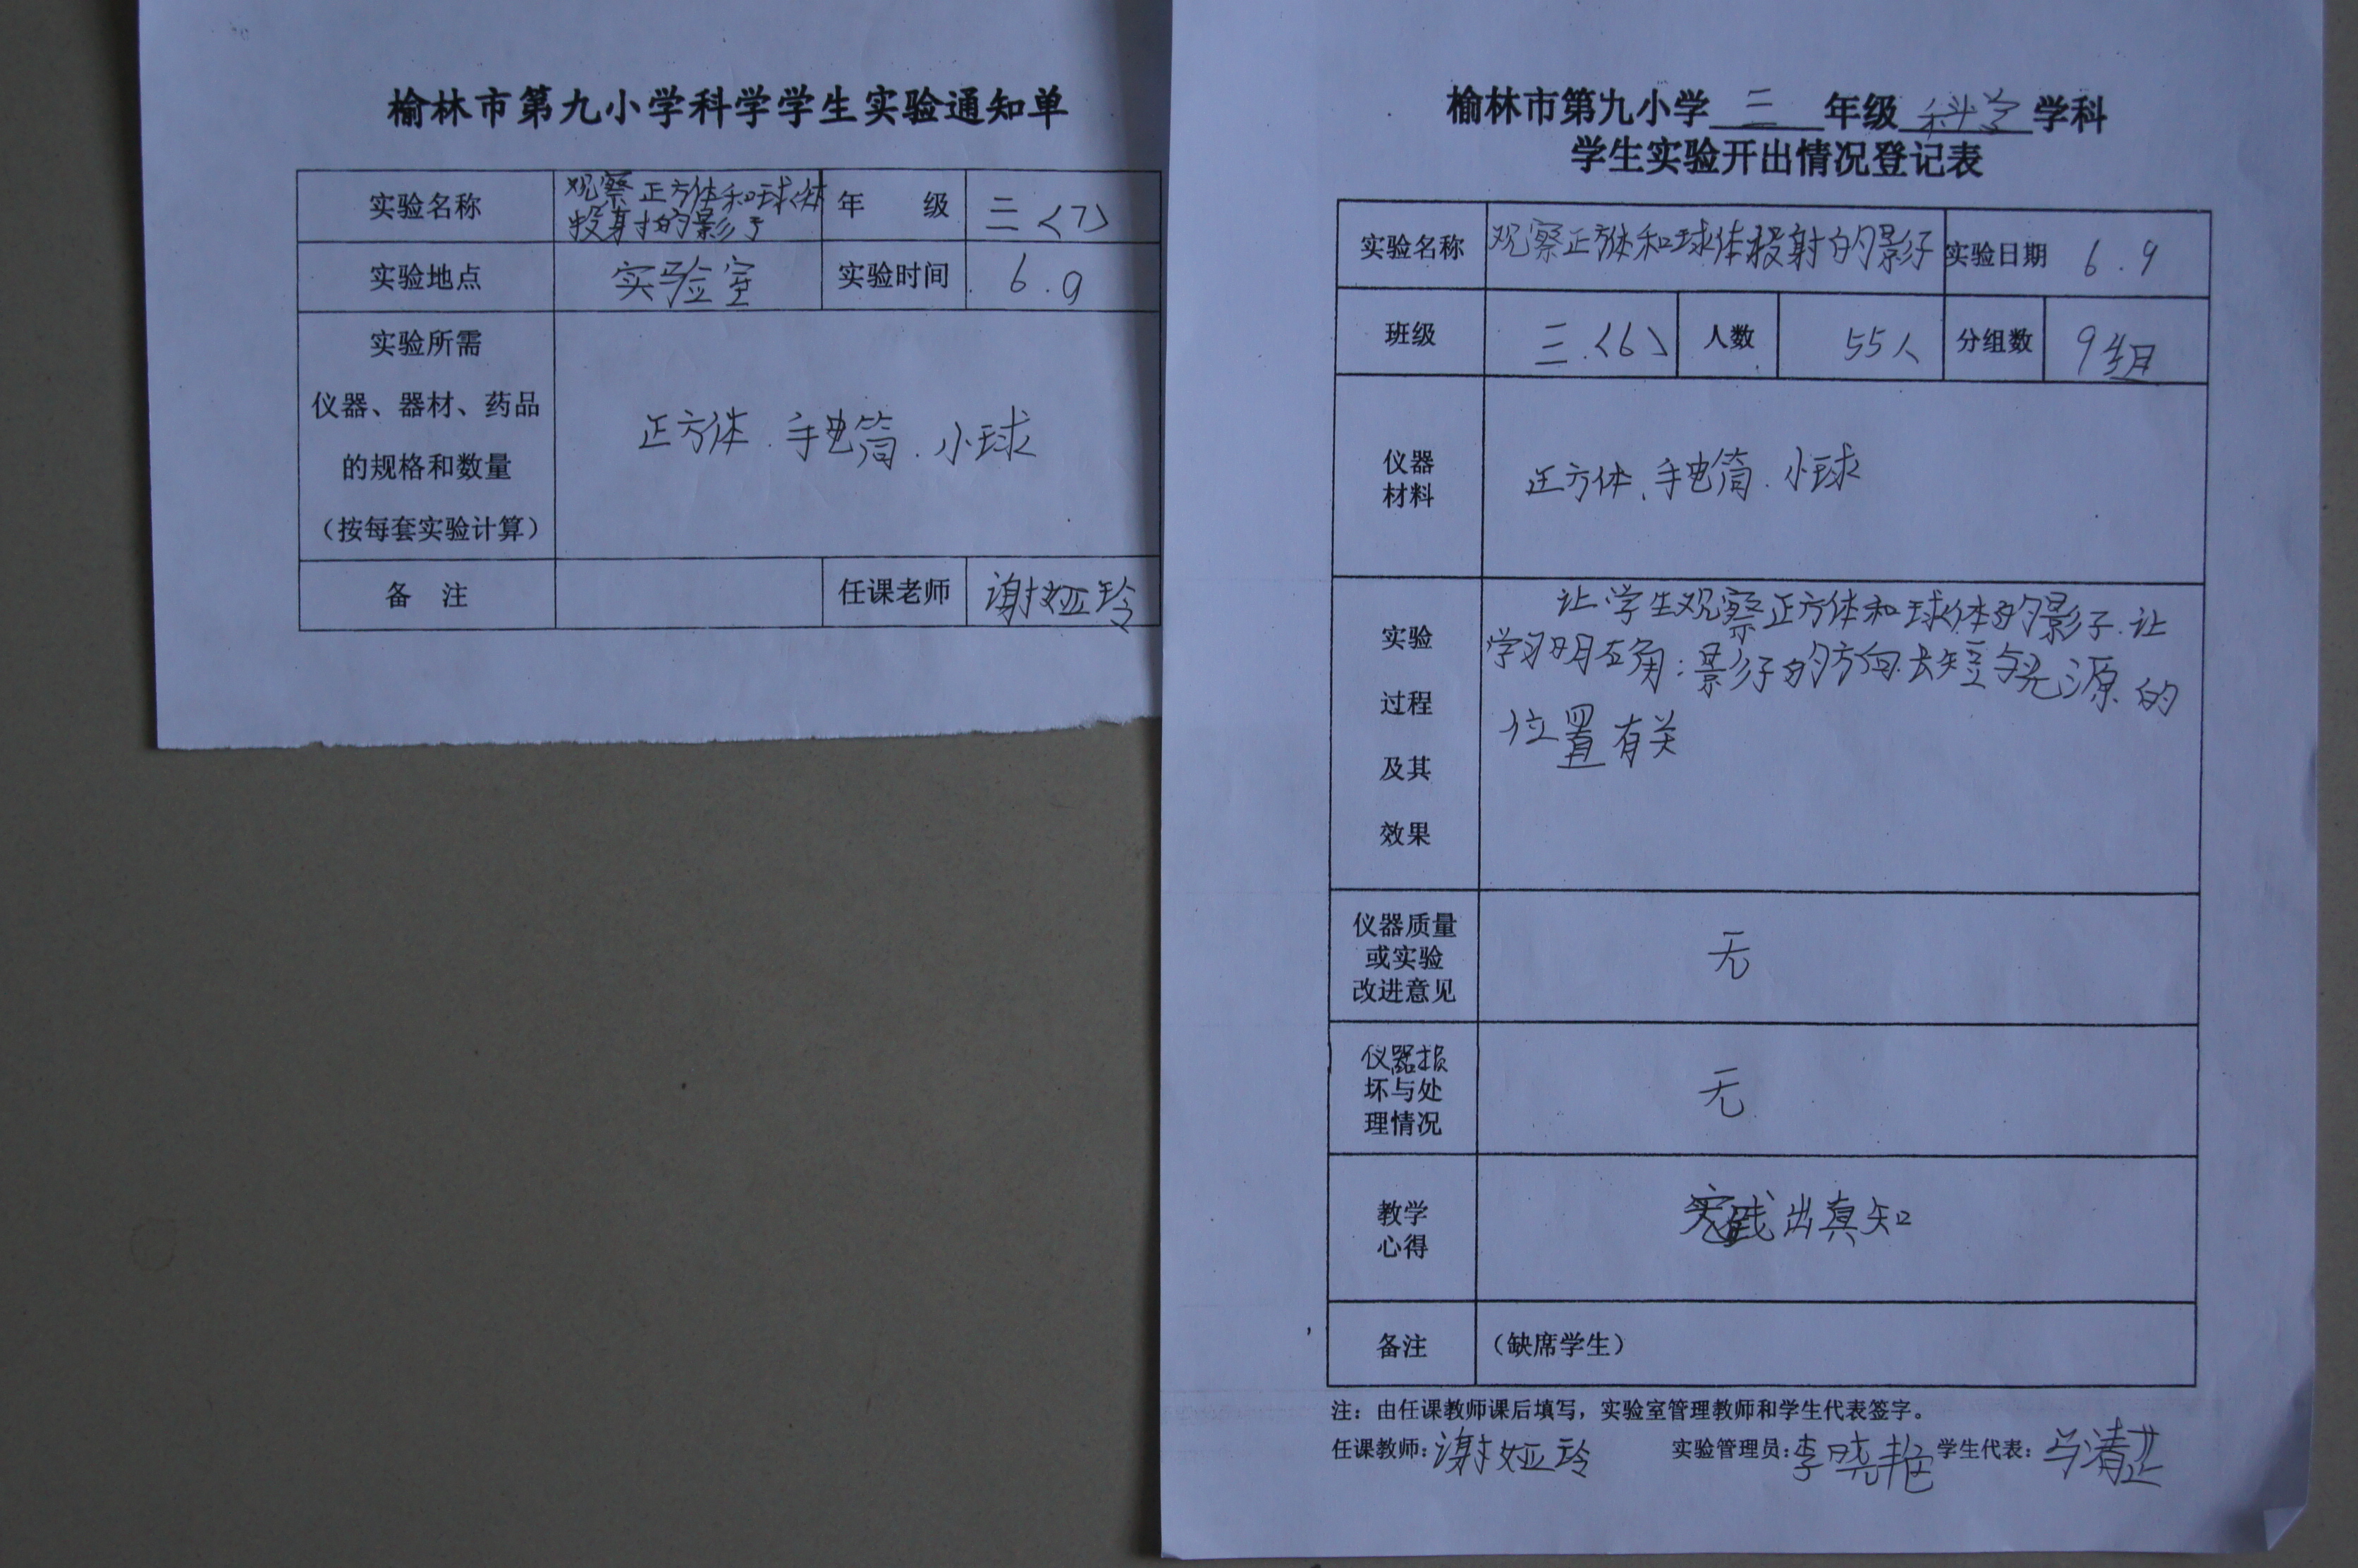 榆林市第九小学科学学生实验通知单
实验名称 观察正方体和球体投射的影子 年 级 三〈7〉
实验地点 实验室 实验时间 6.9
实验所需
仪器、器材、药品
的规格和数量
（按每套实验计算）
正方体.手电筒.小球
备 注 任课老师 谢娅玲
榆林市第九小学 三 年级 科学 学科
学生实验开出情况登记表
实验名称 观察正方体和球体投射的影子 实验日期 6.9
班级 三.〈6〉 人数 55人 分组数 9组
仪器
材料
正方体、手电筒.小球
实验
过程
及其
效果
让学生观察正方体和球体的影子.让
学习明白角:影子的方向.长短与光源的
位置有关
仪器质量
或实验
改进意见
无
仪器损
坏与处
理情况
无
教学
心得
实践出真知
备注 （缺席学生）
注：由任课教师课后填写，实验室管理教师和学生代表签字。
任课教师:谢娅玲 实验管理员:李晓艳 学生代表:马清